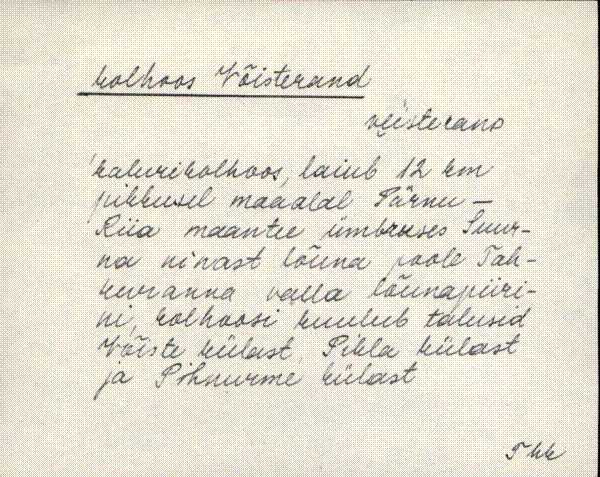 kolhoos Võisterand
veisterand
kalurikolhoos, laiub 12 km
pikkusel maaalal Pärnu –
Riia maantee ümbruses Suur-
na ninast lõuna poole Tah-
kuranna valla lõunapiiri-
ni, kolhoosi kuulub talusid
Võiste külast, Pikla külast
ja Pihnurme külast
Thk